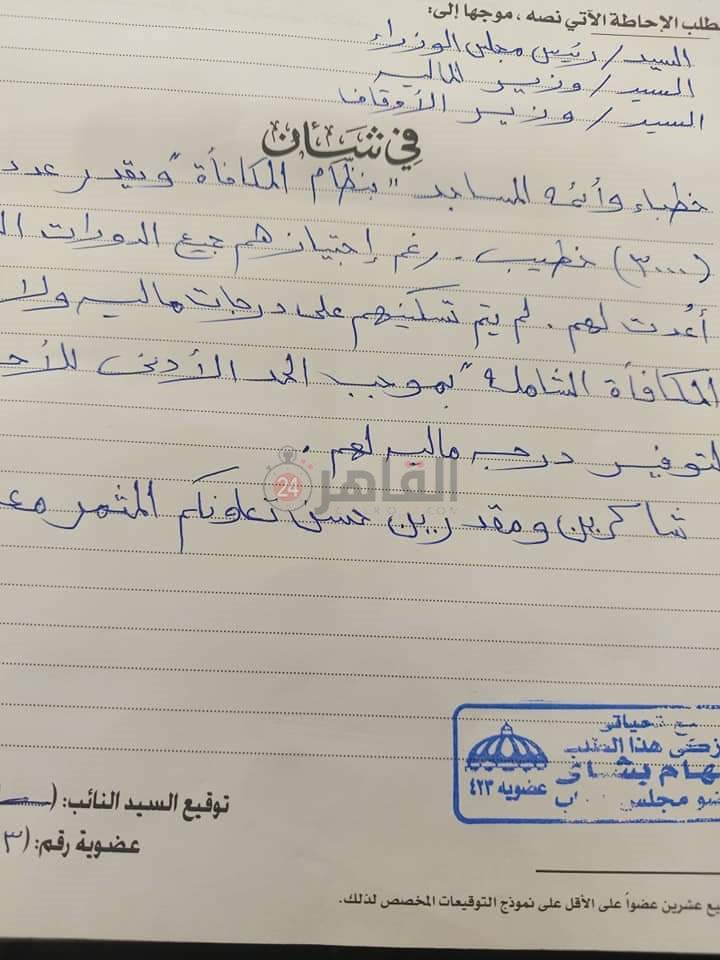 طلب الإحاطة الآتي نصه ، موجها إلى:
السيد / رئيس مجلس الوزراء
السيد / وزير المالية
السيد / وزير الأوقاف
في شأن
خطباء وأئمة المساجد "بنظام المكافأة" ويقدر عدد
(٣٠٠٠) خطيب . رغم إجتيازهم جميع الدورات
أعدت لهم . لم يتم تسكينهم على درجات ماليه ولا
المكافأة الشاملة "بموجب الحد الأدنى
لتوفير درجه ماليه لهم .
القاهرة 24
شاكرين ومقدرين حسن تعاونكم المثمر
مع تحياتي
هذا الطلب
عضويه ٤٢٣
مجلس
توقيع السيد النائب: (
عضوية رقم: (
عشرين عضواً على الأقل على نموذج التوقيعات المخصص لذلك.